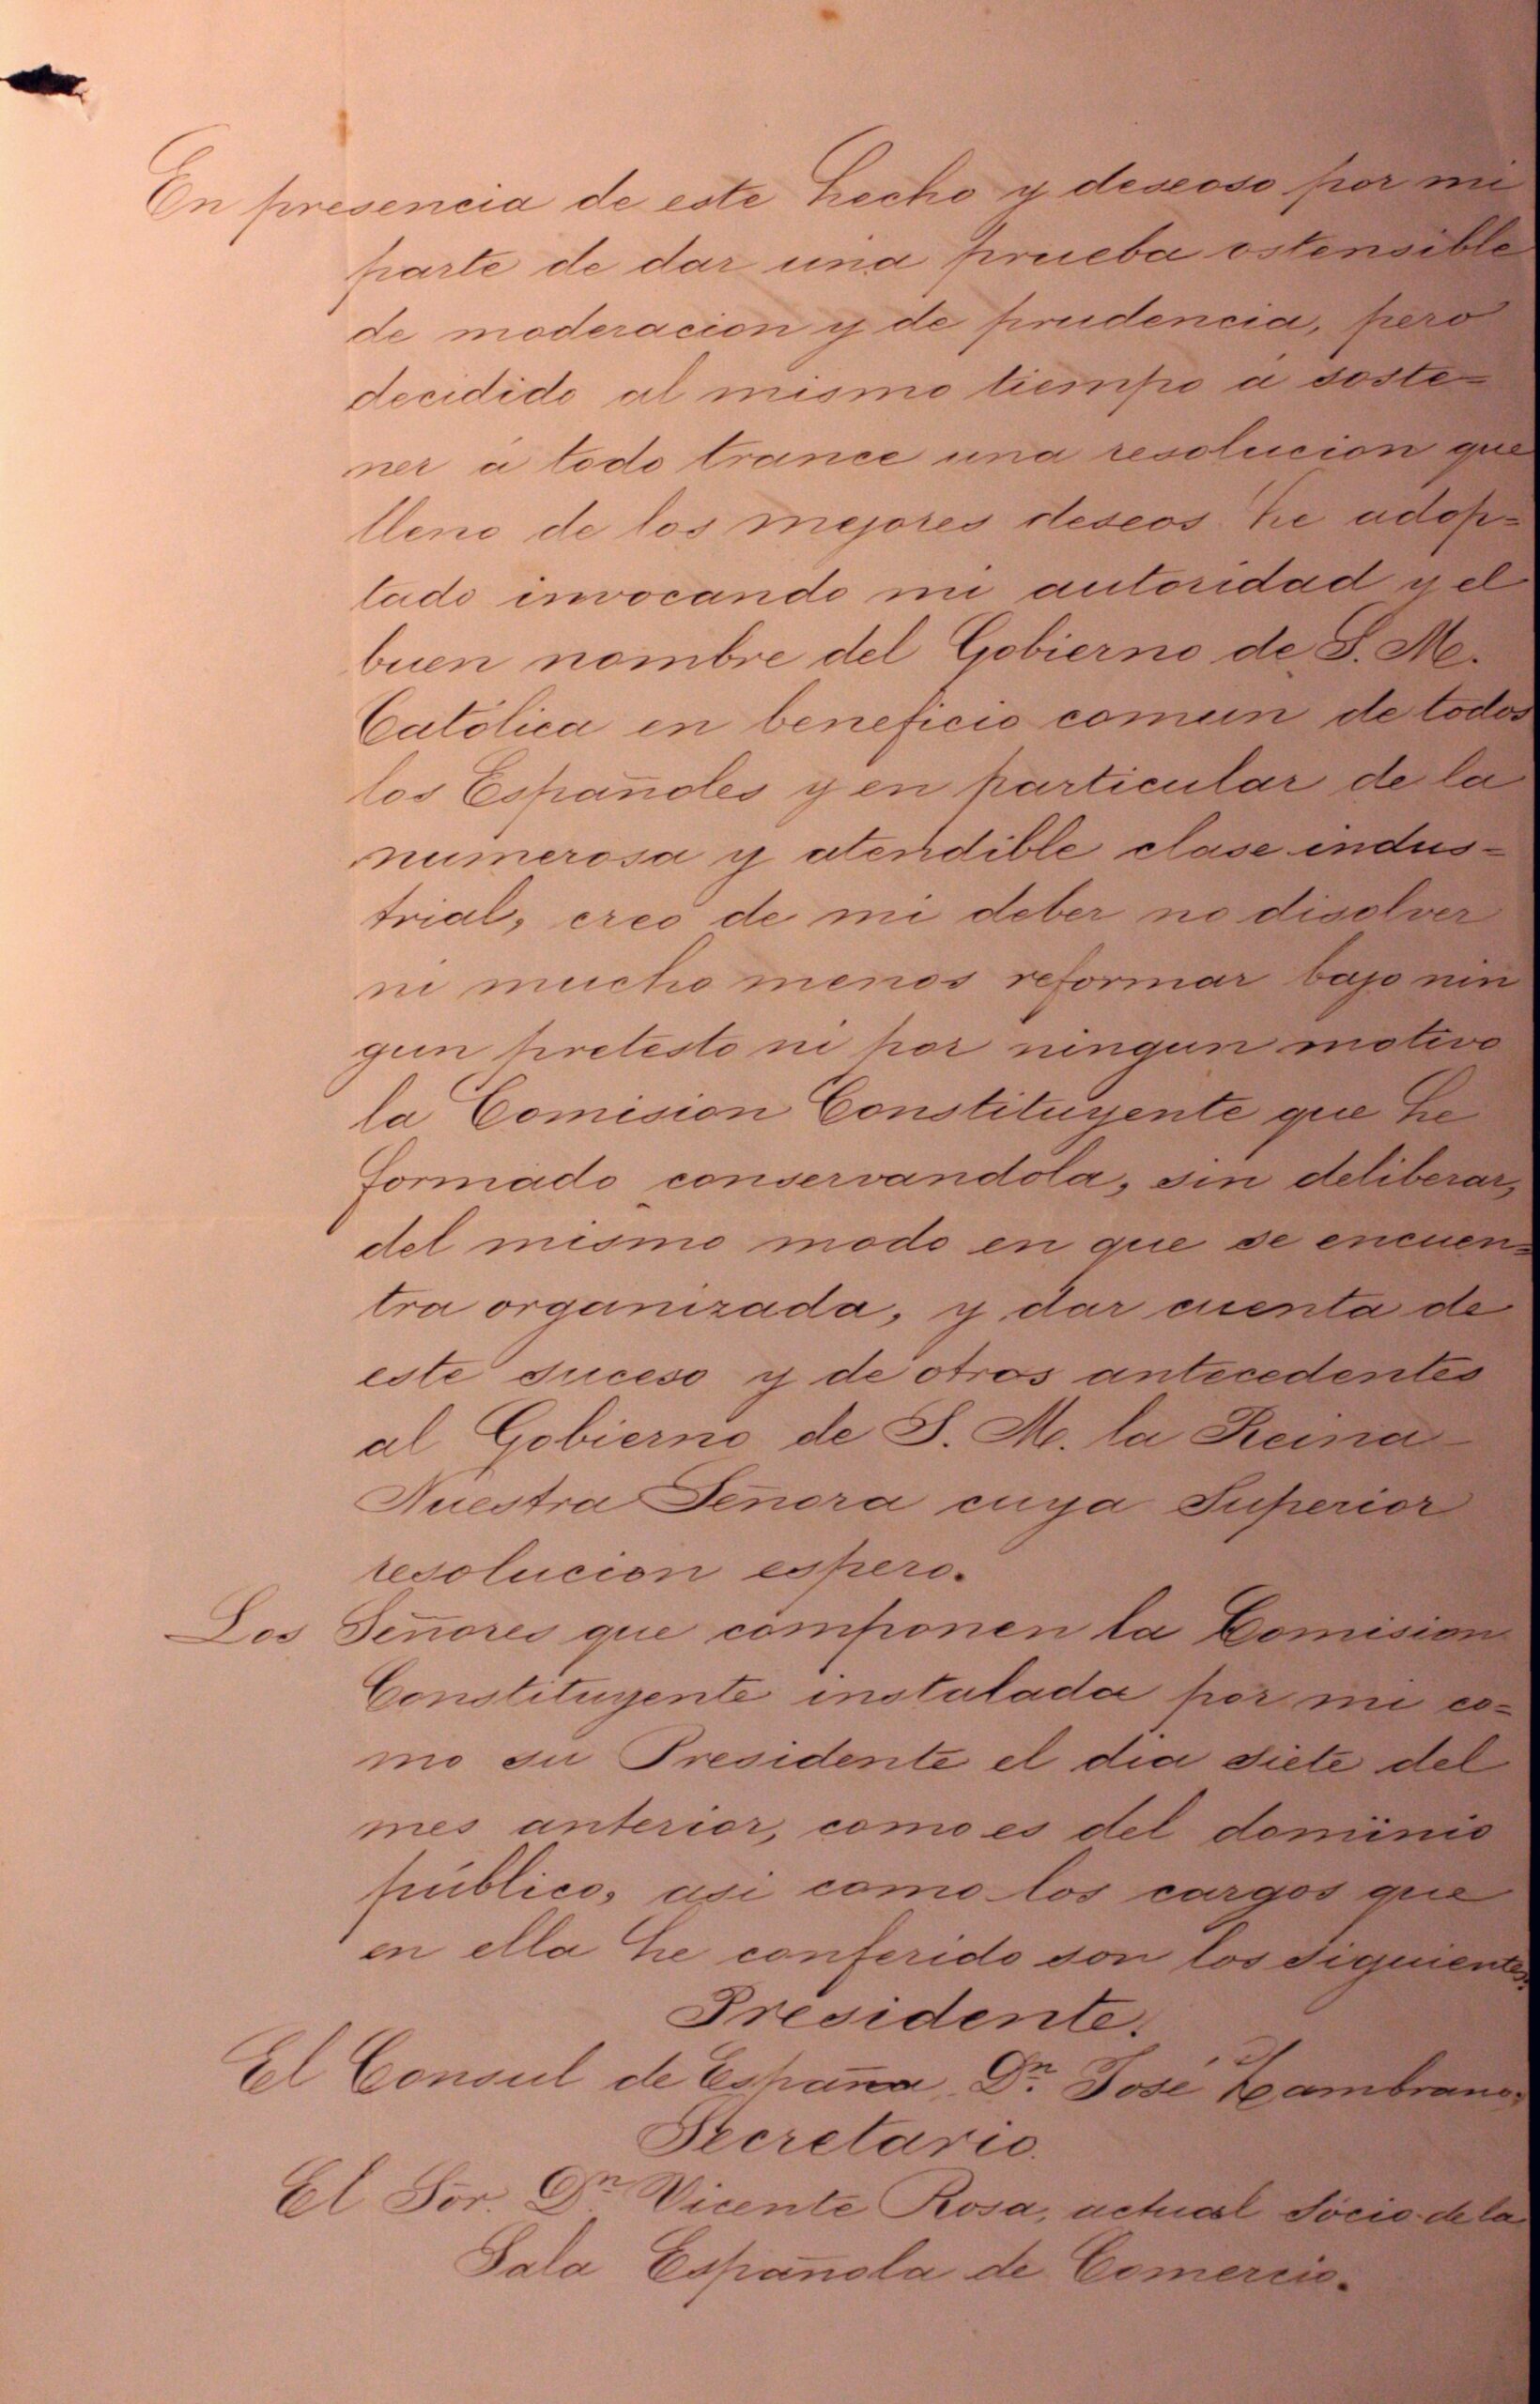 En presencia de este hecho y deseoso por mi
parte de dar una prueba ostensible
de moderacion y de prudencia, pero
decidido al mismo tiempo á soste=
ner á todo trance una resolucion que
lleno de los mejores deseos he adop=
tado invocando mi autoridad y el
buen nombre del Gobierno de S. M.
Católica en beneficio comun de todos
los Españoles y en particular de la
numerosa y atendible clase indus=
trial, creo de mi deber no disolver
ni mucho menos reformar bajo nin
gun pretesto ni por ningun motivo
la Comision Constituyente que he
formado conservandola, sin deliberar,
del mismo modo en que se encuen=
tra organizada, y dar cuenta de
este suceso y de otros antecedentes
al Gobierno de S. M. la Reina
Nuestra Señora cuya Superior
resolucion espero.
Los Señores que componen la Comision
Constituyente instalada por mi co=
mo su Presidente el dia siete del
mes anterior, como es del dominio
público, asi como los cargos que
en ella he conferido son los siguientes:
Presidente.
El Consul de España Dn. José Zambrano.
Secretario.
El Sor. Dn. Vicente Rosa, actual Sócio de la
Sala Española de Comercio.